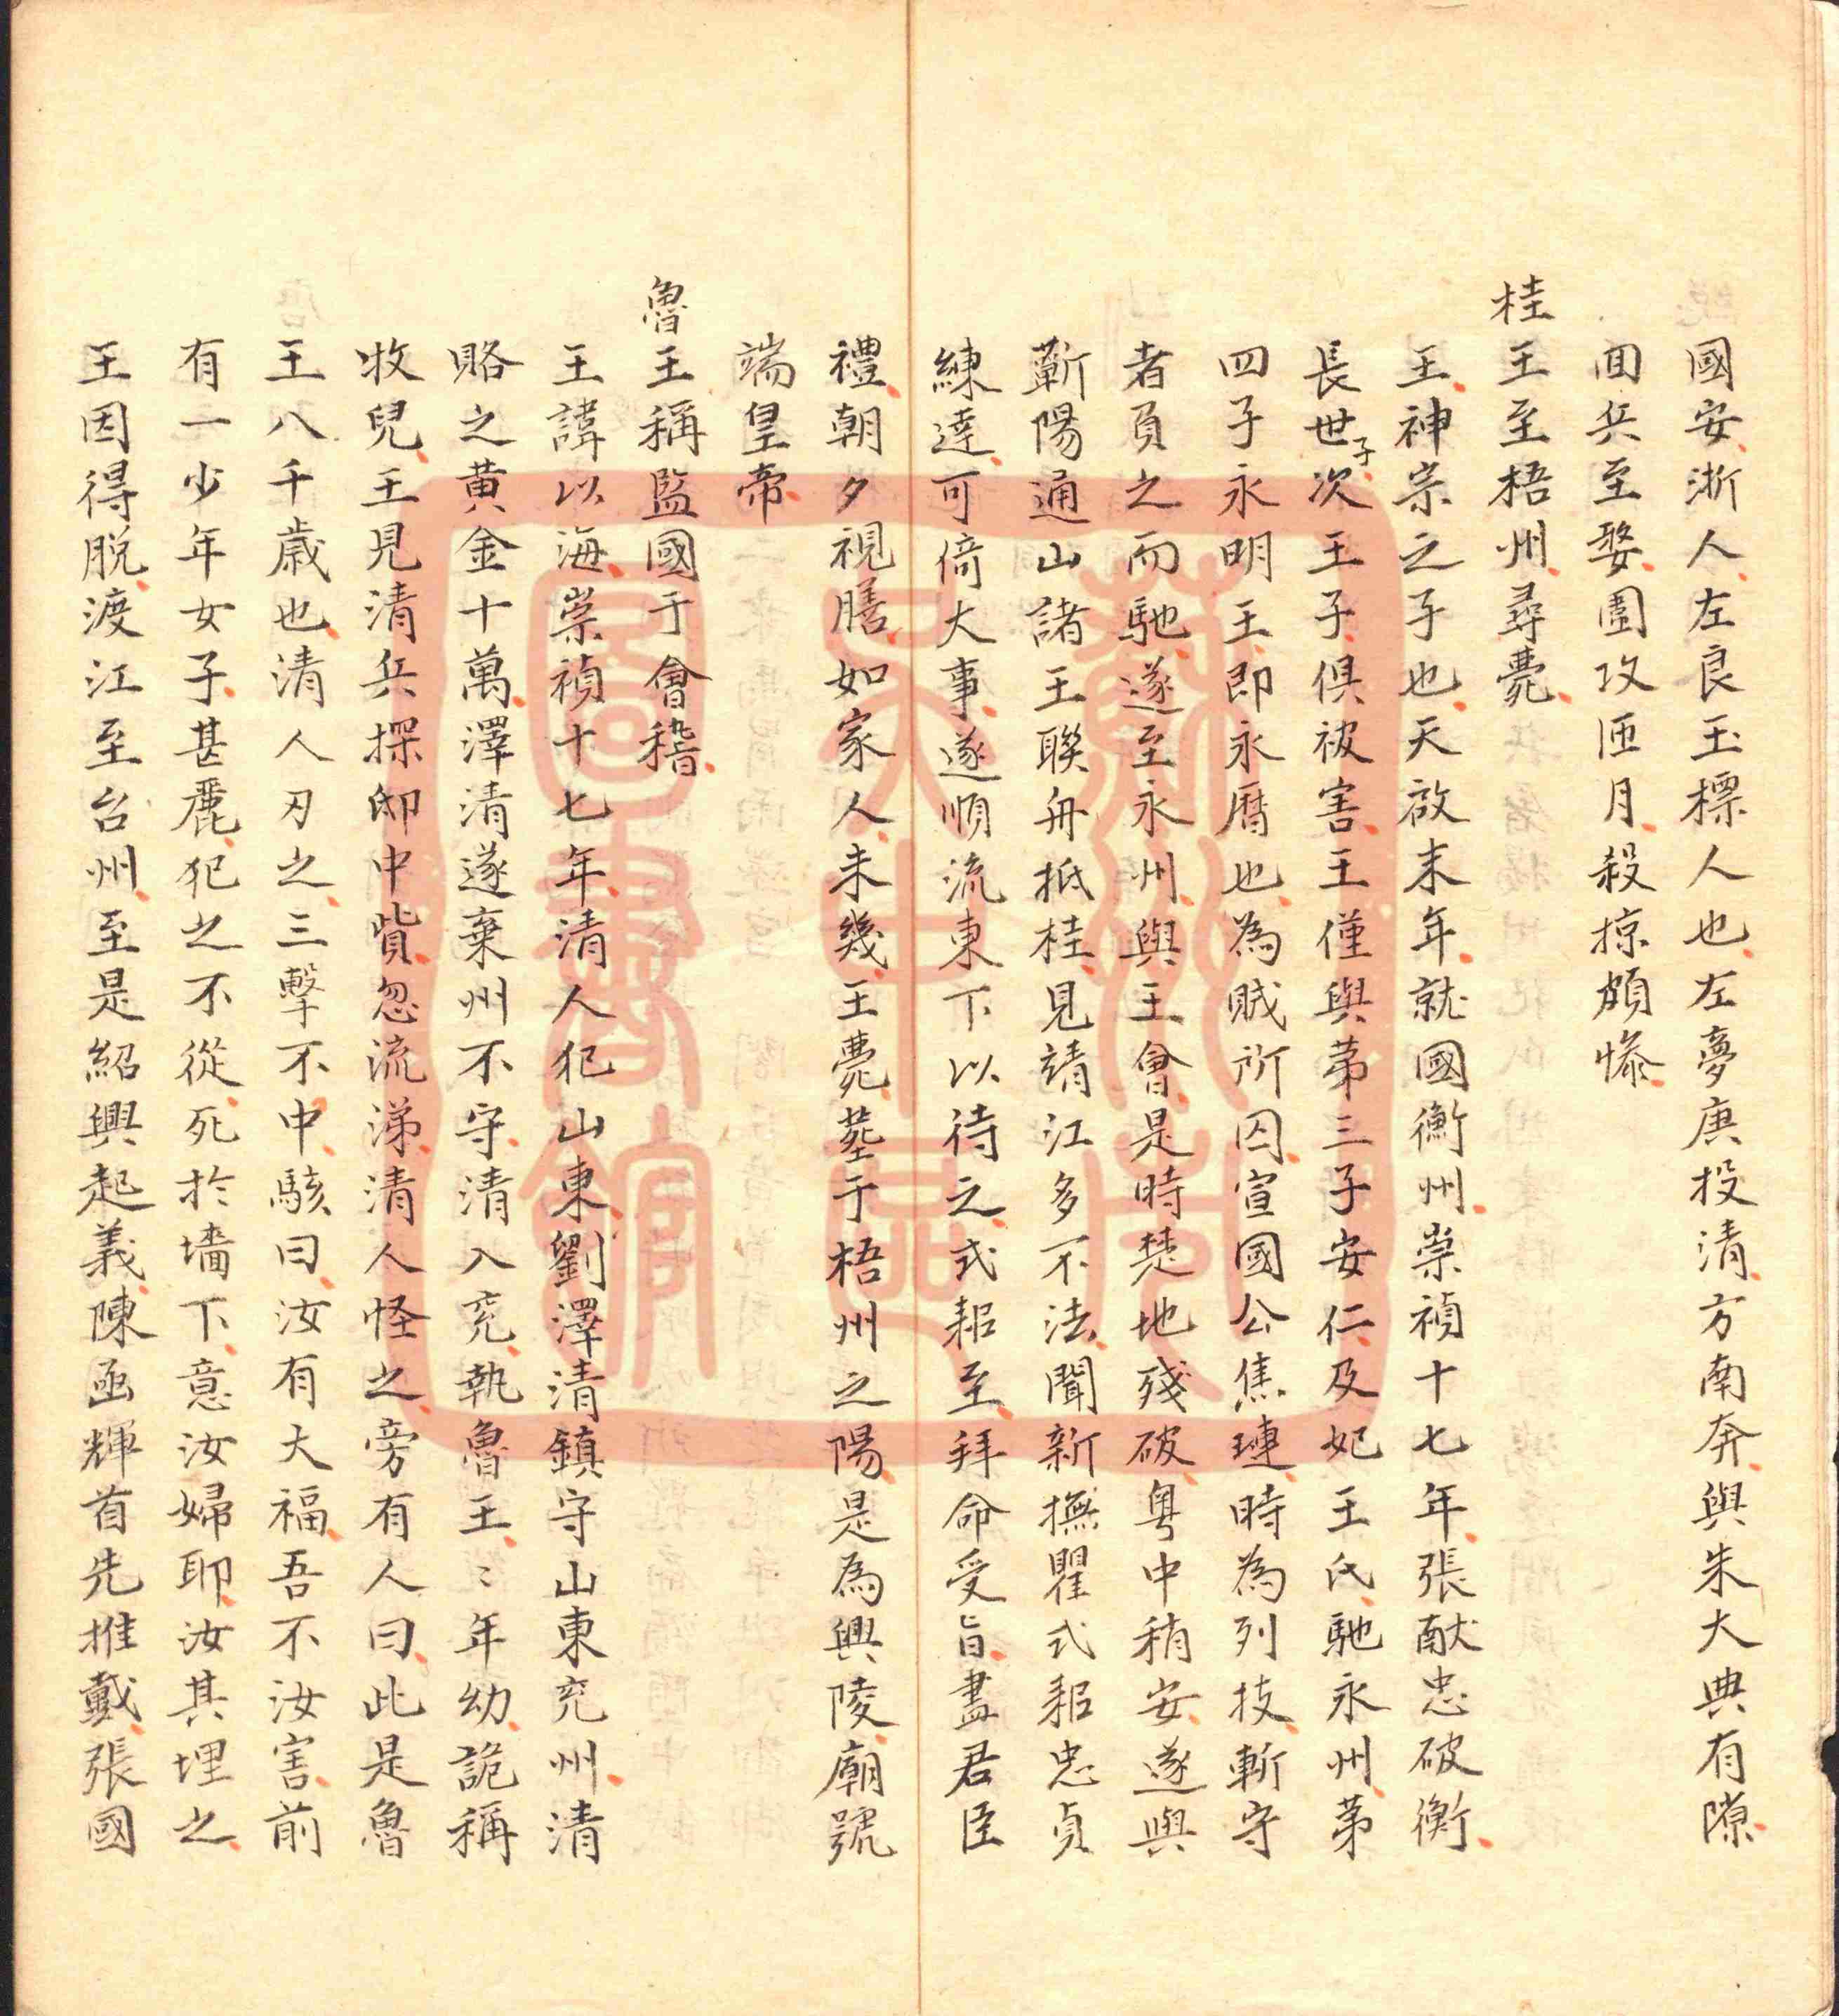 國安浙人左良玉標人也左夢庚投清方南奔與朱大典有隙
囬兵至婺圍攻匝月殺掠頗慘
桂王至梧州尋薨
王神宗之子也天啟末年就國衡州崇禎十七年張献忠破衡
長世子次王子俱被害王僅與苐三子安仁及妃王氏馳永州苐
四子永明王即永曆也為賊所囚宣國公焦璉時為列技斬守
者負之而馳遂至永州與王會是時楚地殘破粤中稍安遂與
蘄陽通山諸王聯舟抵桂見靖江多不法聞新撫瞿式耜忠貞
練達可倚大事遂順流東下以待之式耜至拜命受旨盡君臣
禮朝夕視膳如家人未幾王薨塟于梧州之陽是為興陵廟號
端皇帝
魯王稱監國于會稽
王諱以海崇禎十七年清人犯山東劉澤清鎮守山東兖州清
賂之黄金十萬澤清遂棄州不守清入兖執魯王〻年幼詭稱
牧兒王見清兵探邸中貲忽流涕清人怪之旁有人曰此是魯
王八千歲也清人刃之三擊不中駭曰汝有大福吾不汝害前
有一少年女子甚麗犯之不從死於墻下意汝婦耶汝其埋之
王因得脱渡江至台州至是紹興起義陳凾輝首先推戴張國
蘇州大學圖書館藏